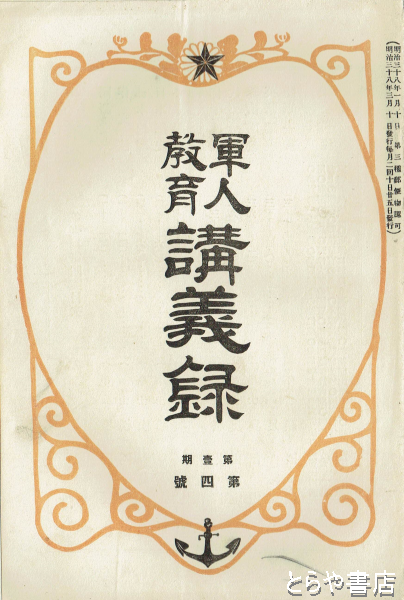 (明治三十八年一月十日 第三種郵便物認可
明治三十八年三月十日發行毎月二回十日廿五日發行)
軍人
教育
講義録
第壹期
第四號
とらや書店